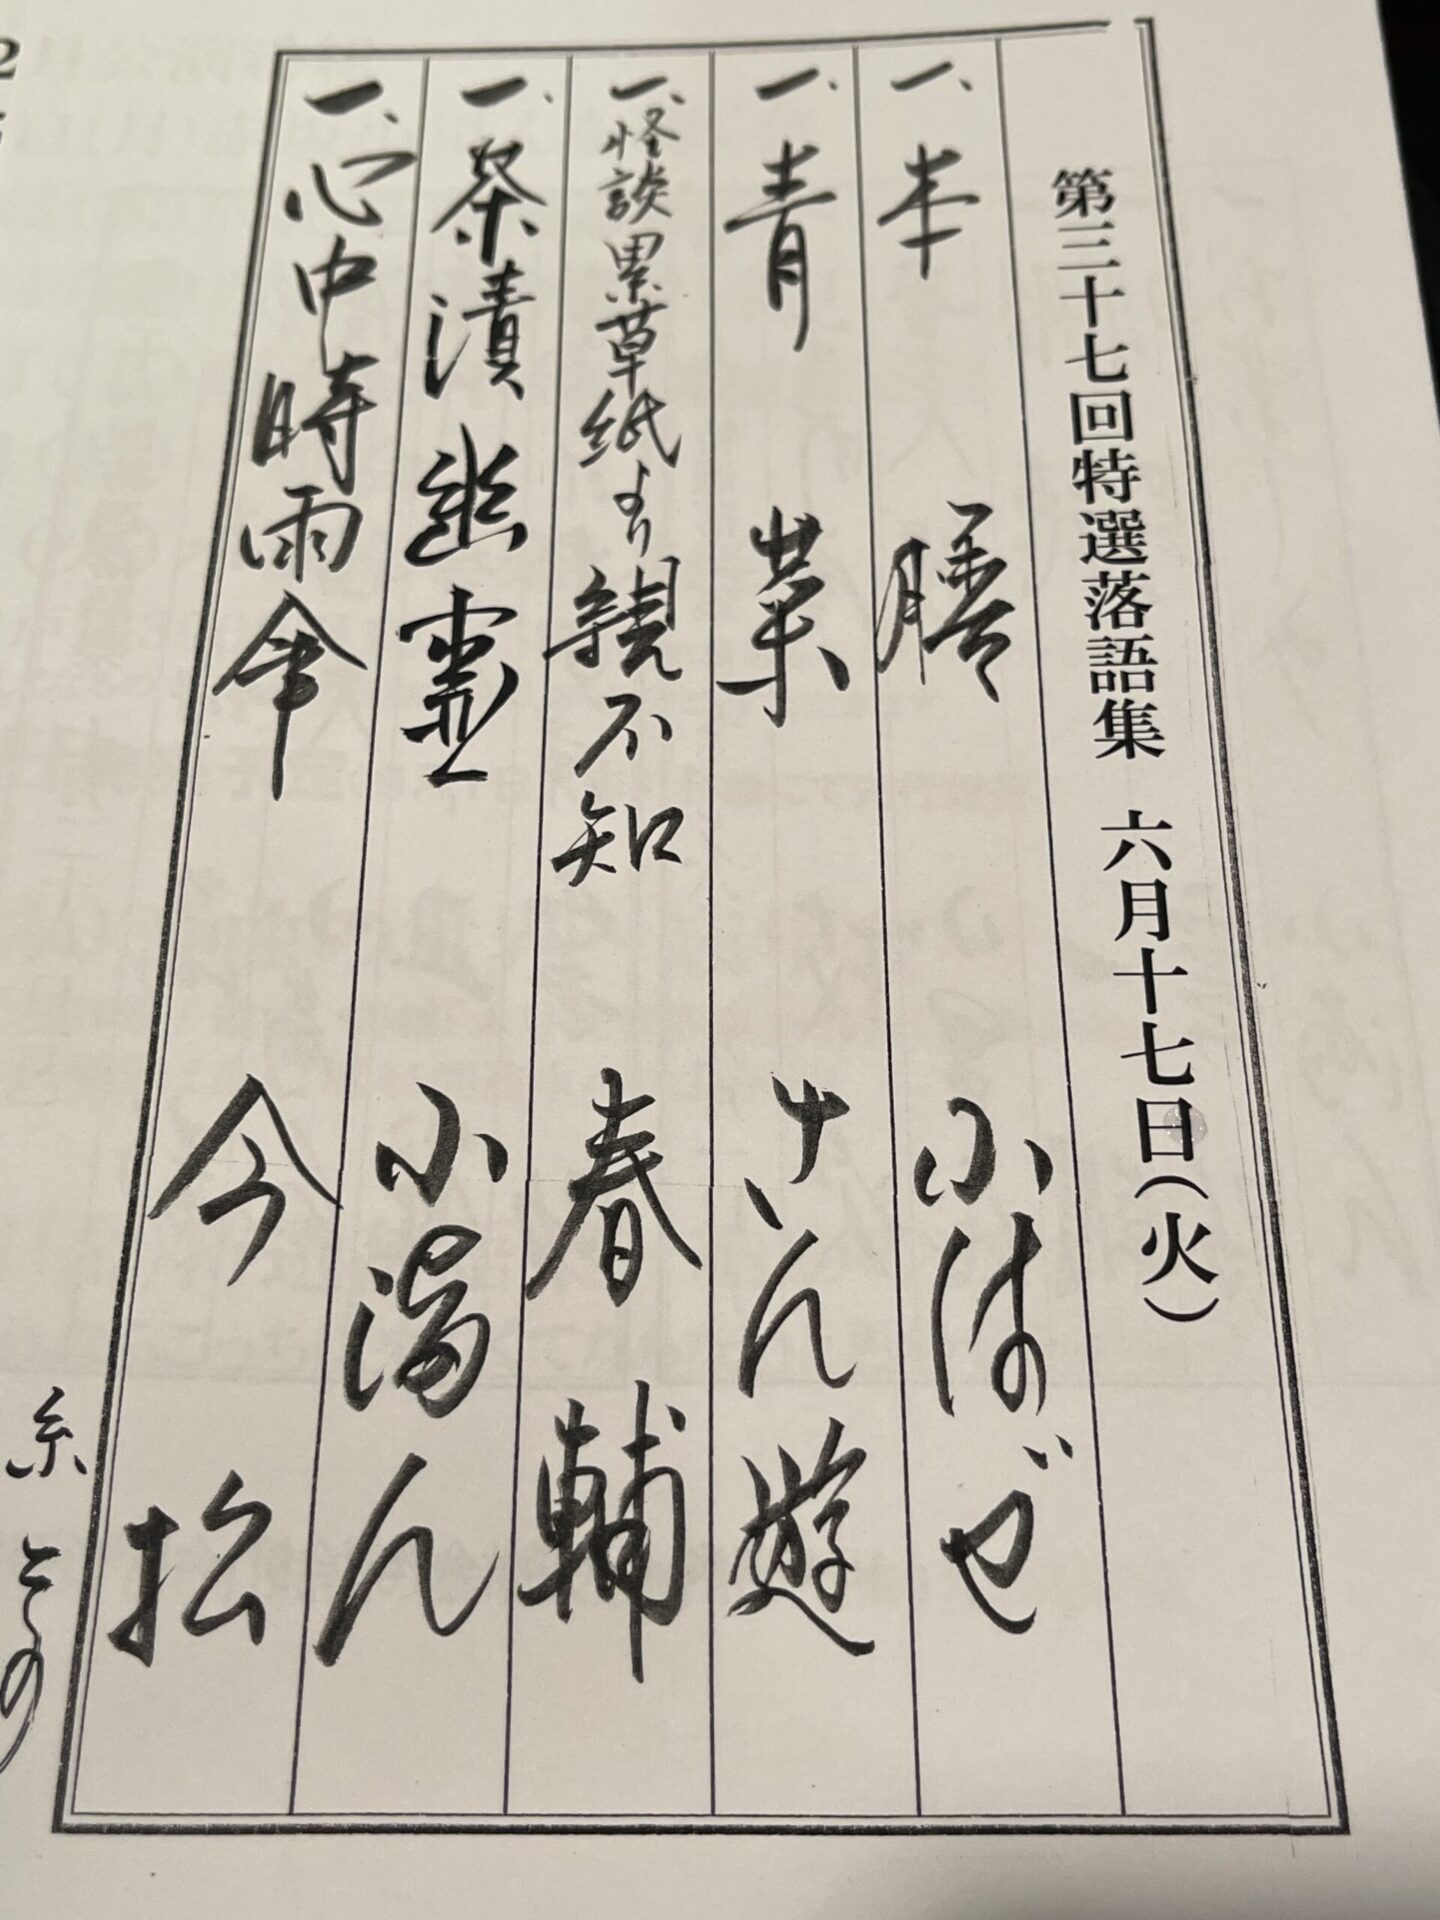 第三十七回特選落語集 六月十七日(火)
一、本膳 小はぜ
一、青菜 さん遊
一、怪談累草紙より親不知 春輔
一、茶漬幽霊 小満ん
一、心中時雨傘 今松
糸 その